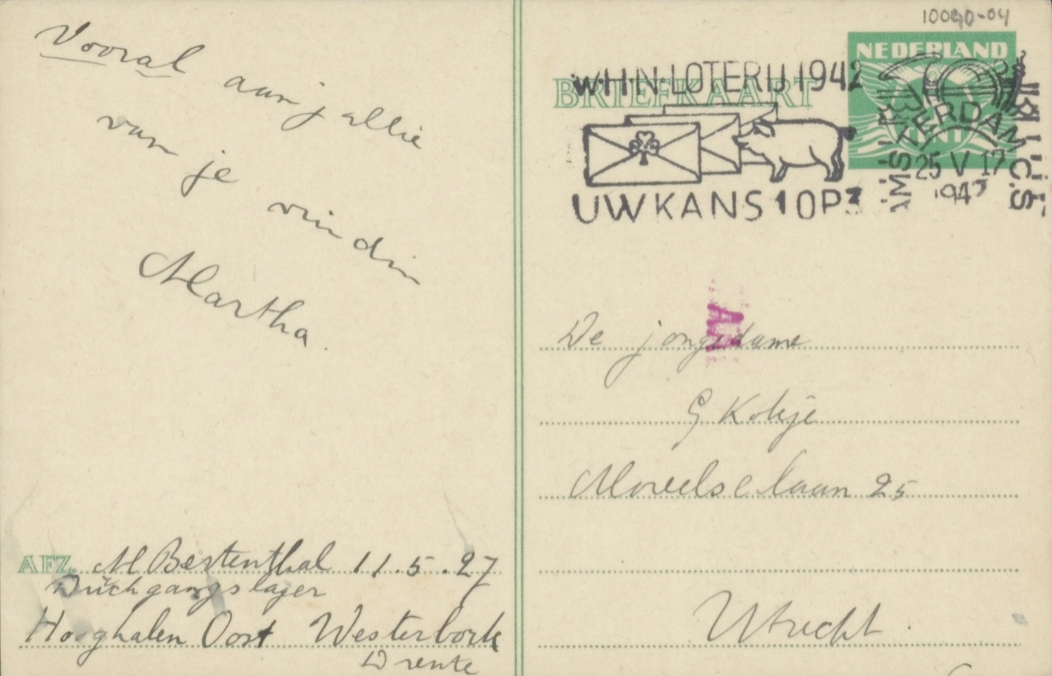 Vooral aan jullie
van je
vriendin
Martha.
AFZ. M Bestenthal 11.5.27
Durchgangslager
Hooghalen Oost Westerbork
Drente
10090-04
NEDERLAND
BRIEFKAART
W.H.N. LOTERIJ 1942
UW KANS 1 OP 3
AMSTERDAM C.S
25 V 17
1942
AN
De jongedame
G Kolije
Moreelselaan 25
Utrecht.